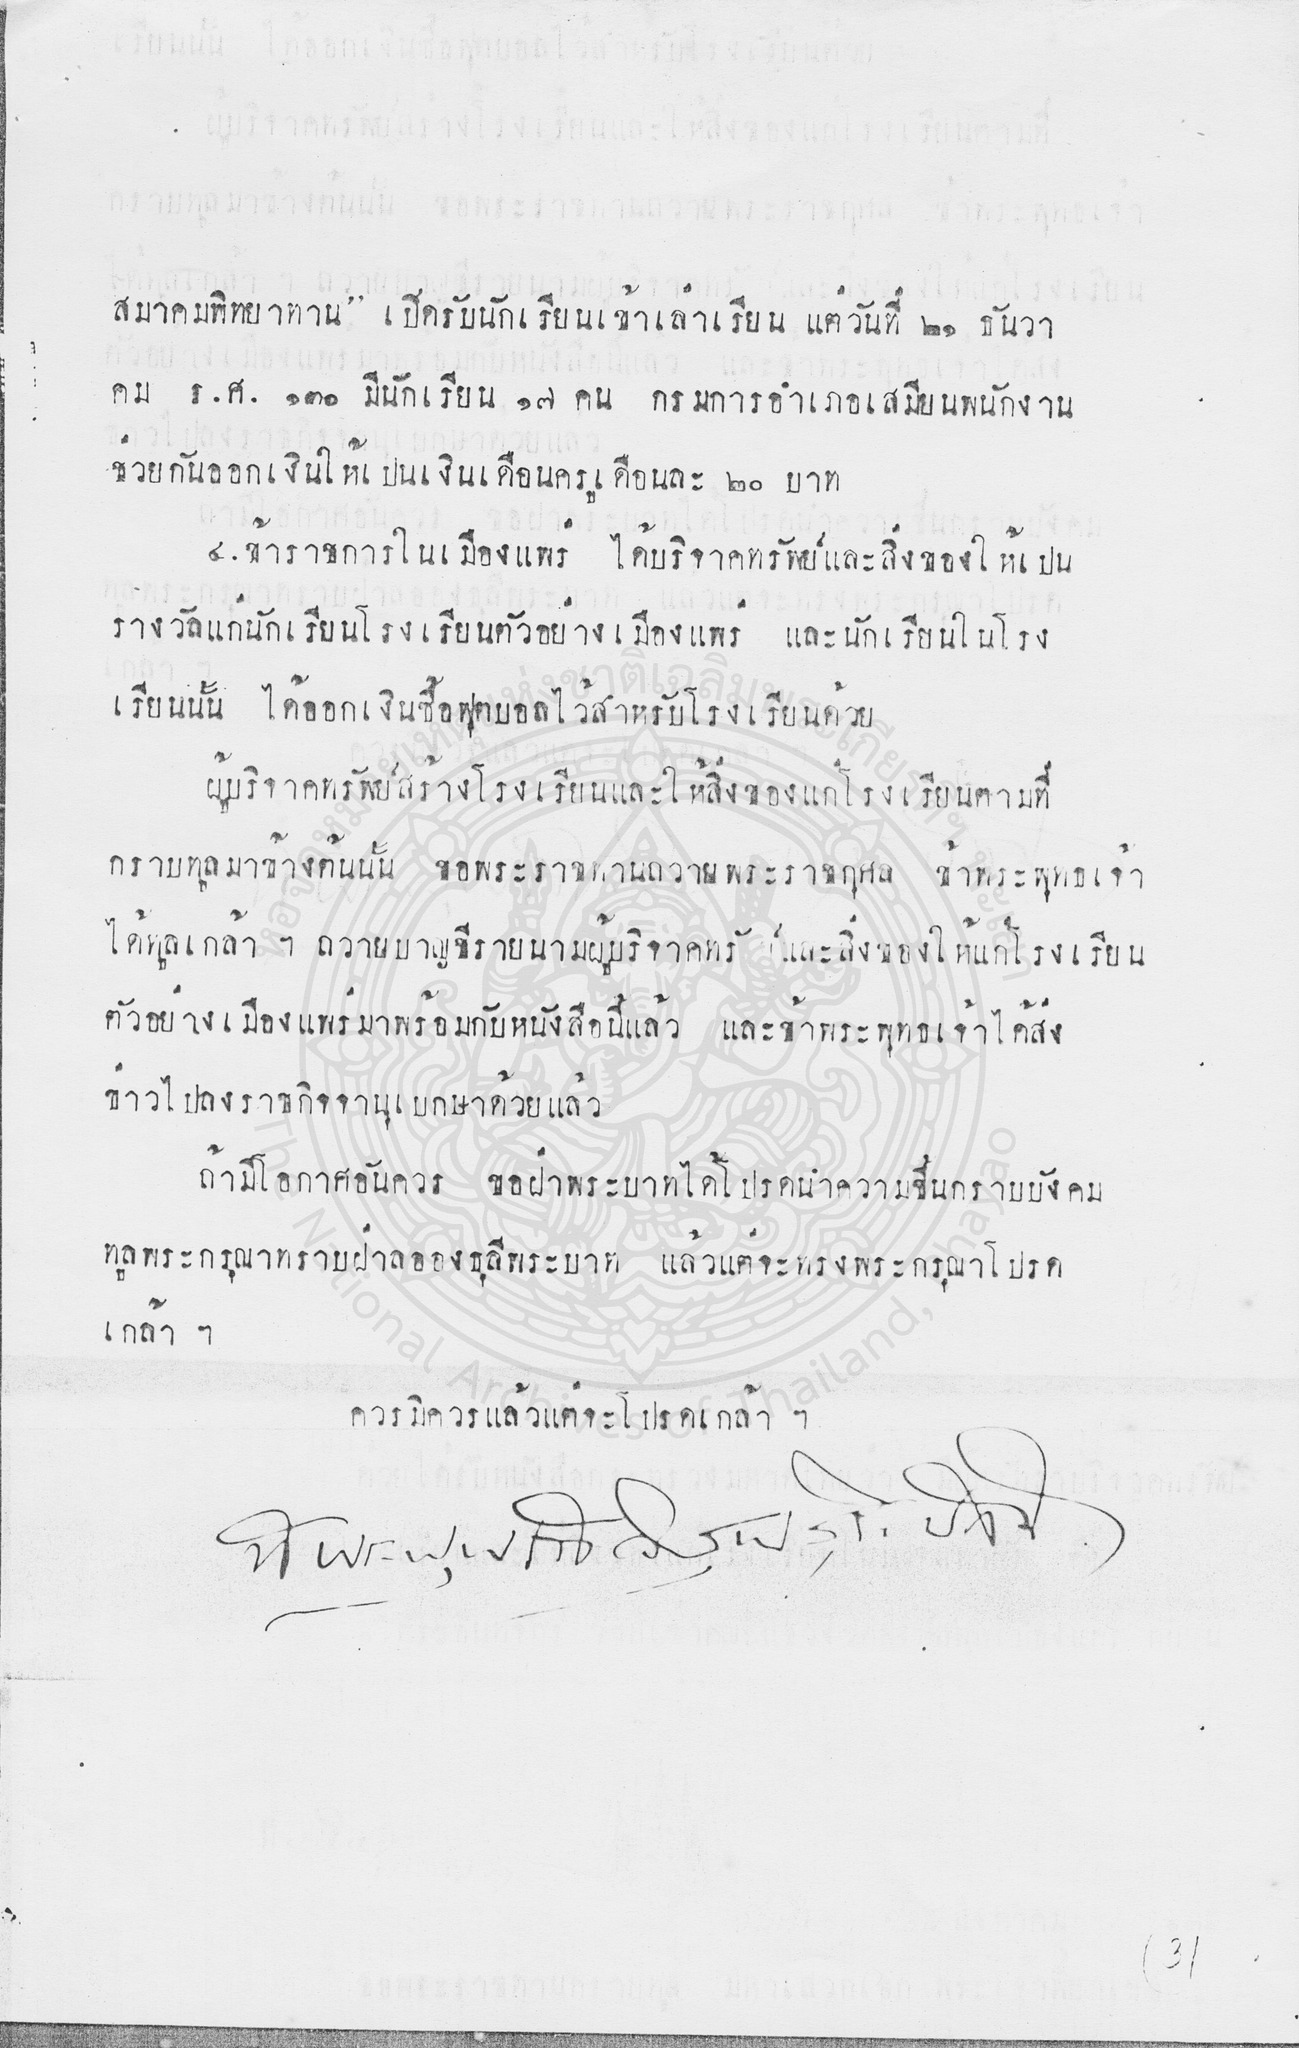 สมาคมพิทยาทาน” เปิดรับนักเรียนเข้าเล่าเรียน แต่วันที่ ๒๑ ธันวา
คม ร.ศ. ๑๓๐ มีนักเรียน ๑๗ คน กรมการอำเภอเสมียนพนักงาน
ช่วยกันออกเงินให้เปนเงินเดือนครูเดือนละ ๒๐ บาท
๔. ข้าราชการในเมืองแพร่ ได้บริจาคทรัพย์และสิ่งของให้เปน
รางวัลแก่นักเรียนโรงเรียนตัวอย่างเมืองแพร่ และนักเรียนในโรง
เรียนนั้น ได้ออกเงินซื้อฟุตบอลไว้สำหรับโรงเรียนด้วย
ผู้บริจาคทรัพย์สร้างโรงเรียนและให้สิ่งของแก่โรงเรียนตามที่
กราบทูลมาข้างต้นนั้น ขอพระราชทานถวายพระราชกุศล ข้าพระพุทธเจ้า
ได้ทูลเกล้า ฯ ถวายบาญชีรายนามผู้บริจาคทรัพย์และสิ่งของให้แก่โรงเรียน
ตัวอย่างเมืองแพร่มาพร้อมกับหนังสือนี้แล้ว และข้าพระพุทธเจ้าได้ส่ง
ข่าวไปลงราชกิจจานุเบกษาด้วยแล้ว
ถ้ามีโอกาศอันควร ขอฝ่าพระบาทได้โปรดนำความขึ้นกราบบังคม
ทูลพระกรุณาทราบฝ่าลอองธุลีพระบาท แล้วแต่จะทรงพระกรุณาโปรด
เกล้า ฯ
ควรมิควรแล้วแต่จะโปรดเกล้า ฯ
หอจดหมายเหตุแห่งชาติเฉลิมพระเกียรติฯ
The National Archives of Thailand, Phayao
(3)